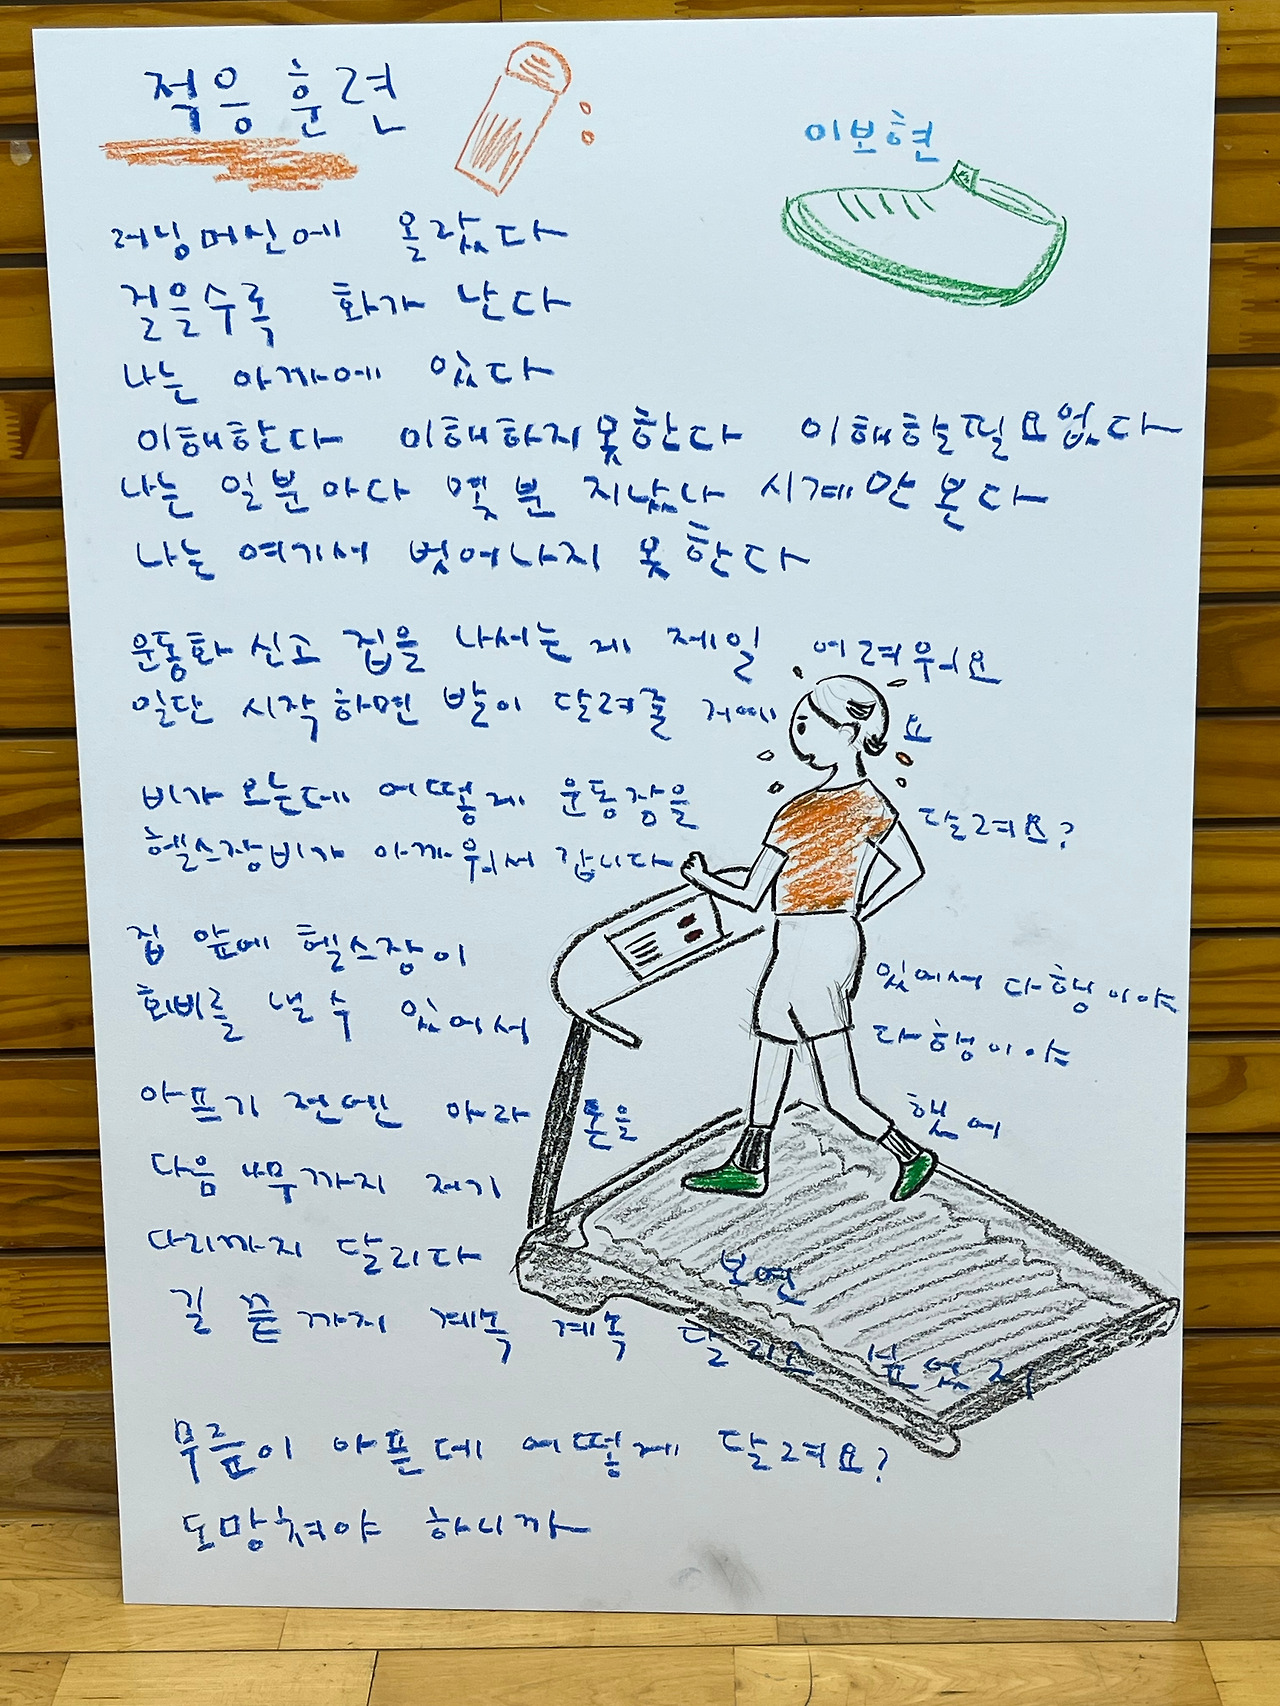 적응 훈련
이보현
러닝머신에 올랐다
걸을수록 화가 난다
나는 아까에 있다
이해한다 이해하지못한다 이해할필요없다
나는 일분마다 몇분 지났나 시계만 본다
나는 여기서 벗어나지 못한다
운동화 신고 집을 나서는 게 제일 어려워요
일단 시작하면 발이 달려줄 거예요
비가 오는데 어떻게 운동장을 달려요?
헬스장비가 아까워서 갑니다
집 앞에 헬스장이 있어서 다행이야
회비를 낼 수 있어서 다행이야
아프기 전엔 마라톤을 했어
다음 나무까지 저기
다리까지 달리다 보면
길 끝까지 계속 계속 달리고 싶었지
무릎이 아픈데 어떻게 달려요?
도망쳐야 하니까